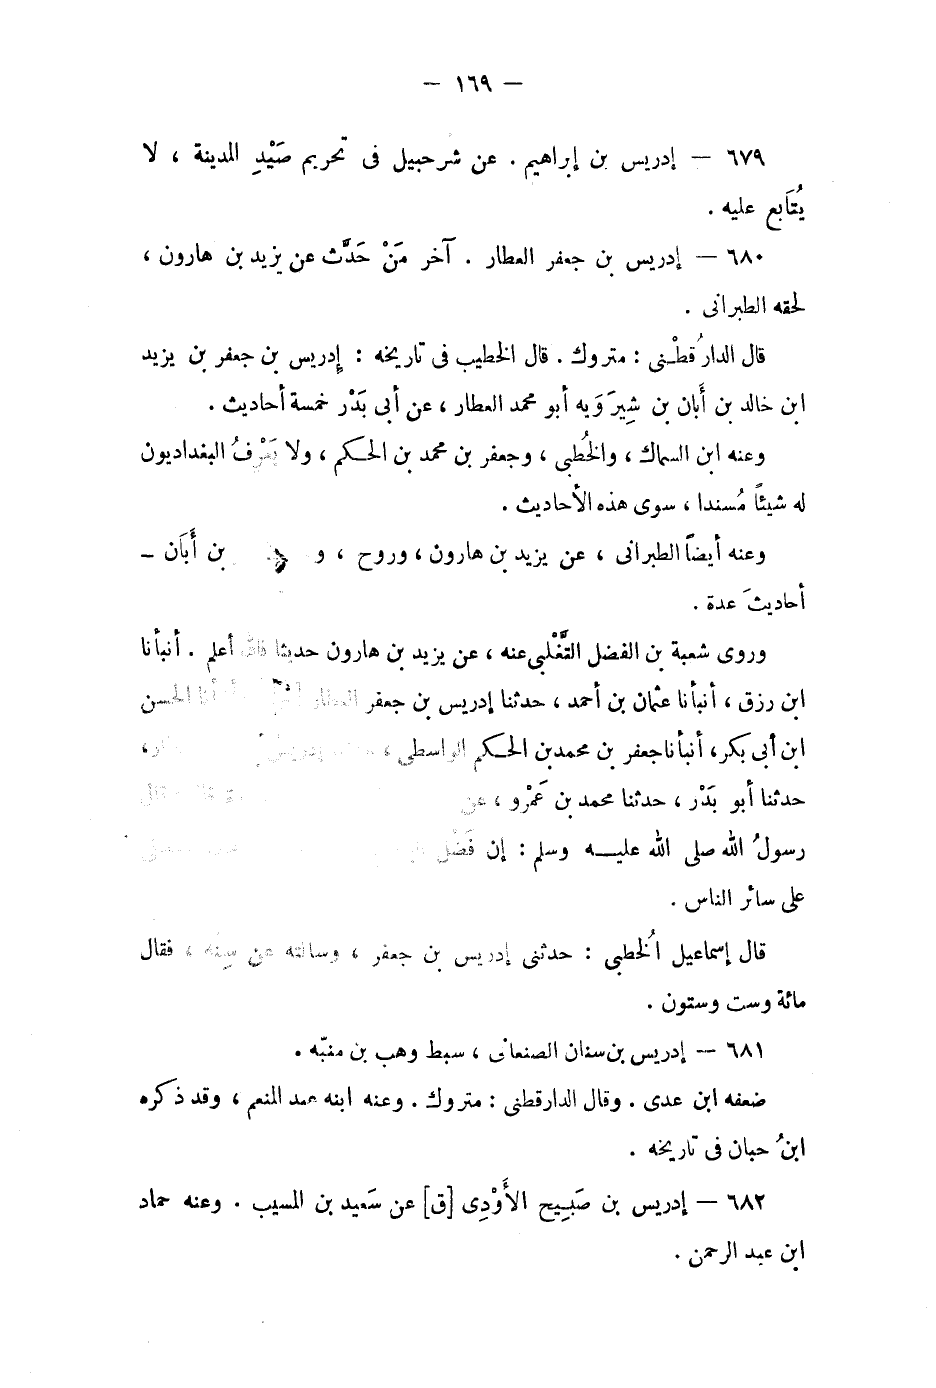 — ١٦٩ —
٦٧٩ — إدريس بن إبراهيم . عن شرحبيل فى تحريم صَيْدِ المدينة ، لا
يُتَابع عليه .
٦٨٠ — إدريس بن جعفر العطار . آخر مَنْ حَدَّث عن يزيد بن هارون ،
لحقه الطبرانى .
قال الدارُقطْنى : متروك . قال الخطيب فى تاريخه : إدريس بن جعفر بن يزيد
ابن خالد بن أَبان بن شِيرَوَيه أبو محمد العطار ، عن أبى بَدْر خمسة أحاديث .
وعنه ابن السماك ، والخُطبى ، وجعفر بن محمد بن الحكم ، ولا يَعْرفُ البغداديون
له شيئًا مُسندا ، سوى هذه الأحاديث .
وعنه أيضاً الطبرانى ، عن يزيد بن هارون ، وروح ، و بن أَبَان —
أحاديثَ عدة .
وروى شعبة بن الفضل التَّغْلبى عنه ، عن يزيد بن هارون حديثا فالله أعلم . أنبأنا
ابن رزق ، أنبأنا عثمان بن أحمد ، حدثنا إدريس بن جعفر العطار الحسن
ابن أبى بكر ، أنبأنا جعفر بن محمد بن الحكم الواسطى ، إدريس
حدثنا أبو بَدْر ، حدثنا محمد بن عَمْرو ، عن قال
رسولُ الله صلى الله عليه وسلم : إن فَضْل
على سائر الناس .
قال إسماعيل الُخطبى : حدثنى إدريس بن جعفر ، وسألته عن سِنّه ، فقال
مائة وست وستون .
٦٨١ — إدريس بن سنان الصنعانى ، سبط وهب بن منبّه .
ضعفه ابن عدى . وقال الدارقطنى : متروك . وعنه ابنه عبد المنعم ، وقد ذكره
ابنُ حبان فى تاريخه .
٦٨٢ — إدريس بن صَبِيح الأَوْدِى [ق] عن سَعيد بن المسيب . وعنه حماد
ابن عبد الرحمن .